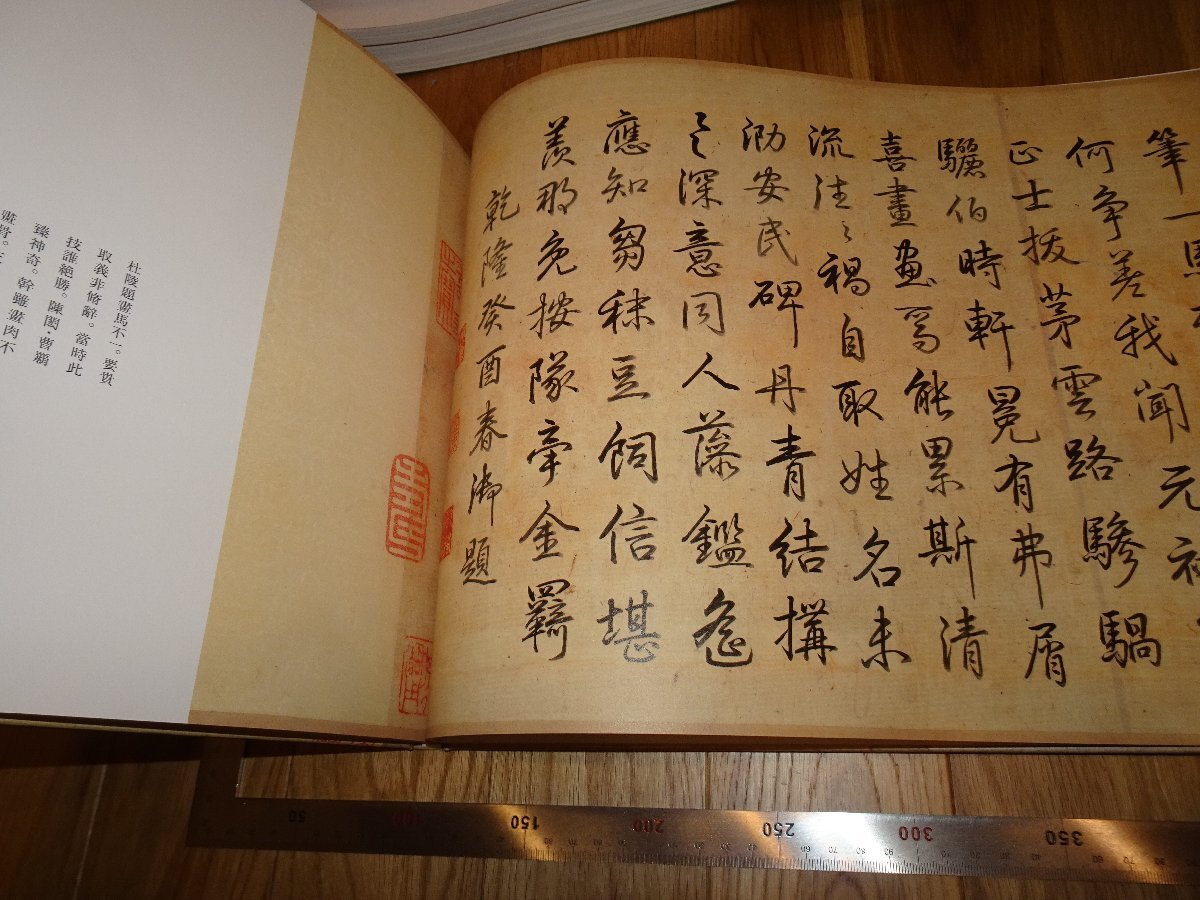 筆一馬
何争差我聞元祐
正士拔茅雲路驂騧
驪伯時軒冕有弗屑
喜畫畫馬能累斯清
流往々禍自取姓名未
泐安民碑丹青結構
之深意同人藻鑑遙
應知芻秣豆飼信堪
羨那免按隊牽金羈
乾隆癸酉春御題
杜陵題畫馬不一。要貴
取義非脩辭。當時此
技誰絶勝。陳閎曹霸
臻神奇。幹雖畫肉不
畫骨。
50 100 150 200 250 300 350